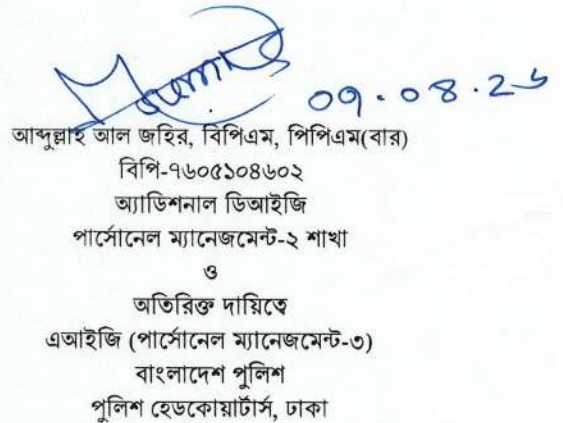 ০৭.০৪.২৬
আব্দুল্লাহ আল জহির, বিপিএম, পিপিএম(বার)
বিপি-৭৬০৫১০৪৬০২
অ্যাডিশনাল ডিআইজি
পার্সোনেল ম্যানেজমেন্ট-২ শাখা
ও
অতিরিক্ত দায়িত্বে
এআইজি (পার্সোনেল ম্যানেজমেন্ট-৩)
বাংলাদেশ পুলিশ
পুলিশ হেডকোয়ার্টার্স, ঢাকা